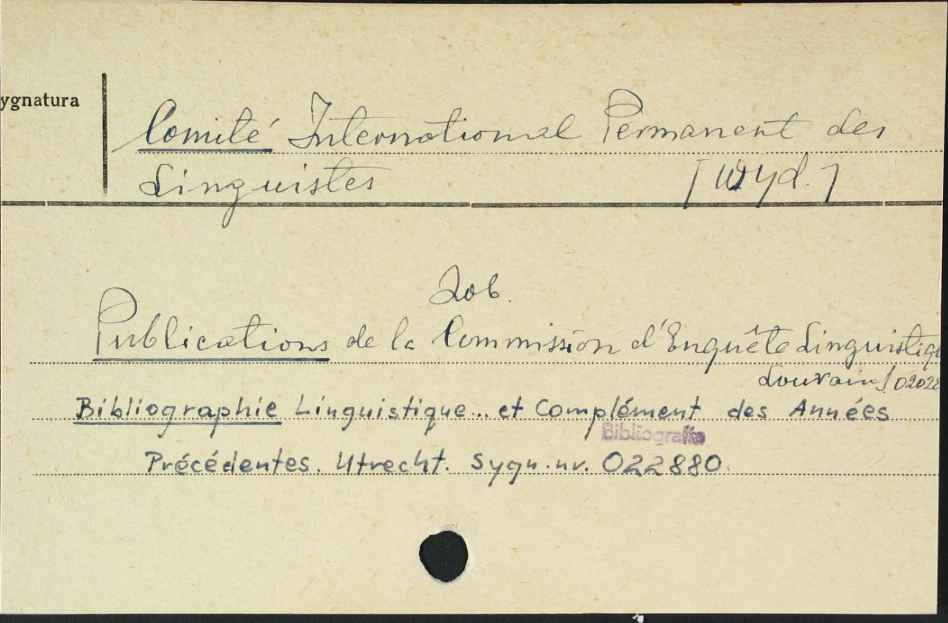 ygnatura
Comité International Permanent des
Linguistes [wyd.]
Zob.
Publications de la Commission d'Enquête Linguistiqu
Louvain/02028
Bibliographie Linguistique.. et Complément des Années
Bibliografia
Précédentes. Utrecht. Sygn.nr. 022880.